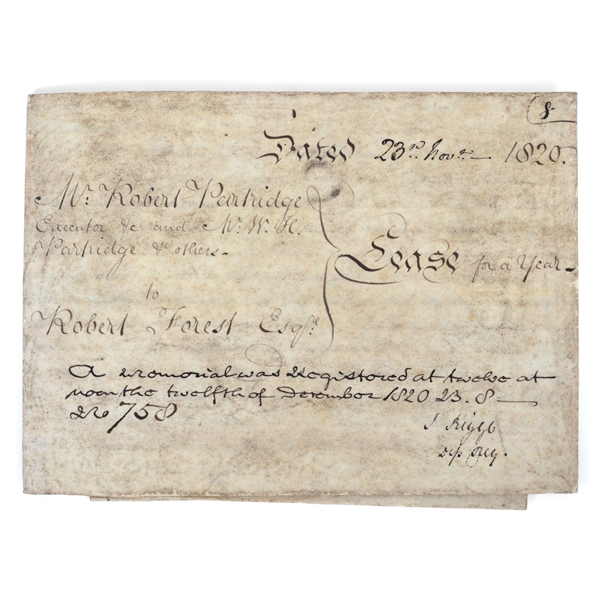 8
Dated 23rd. Novr. 1820.
Mr. Robert Partridge
Executor &c and Mr. W. H.
Partridge & others.
to
Robert Forest Esqre.
Lease for a Year
A memorial was Registered at twelve at
noon the twelfth of December 1820 B. 8
No 758
J Riggs
Dep Reg.